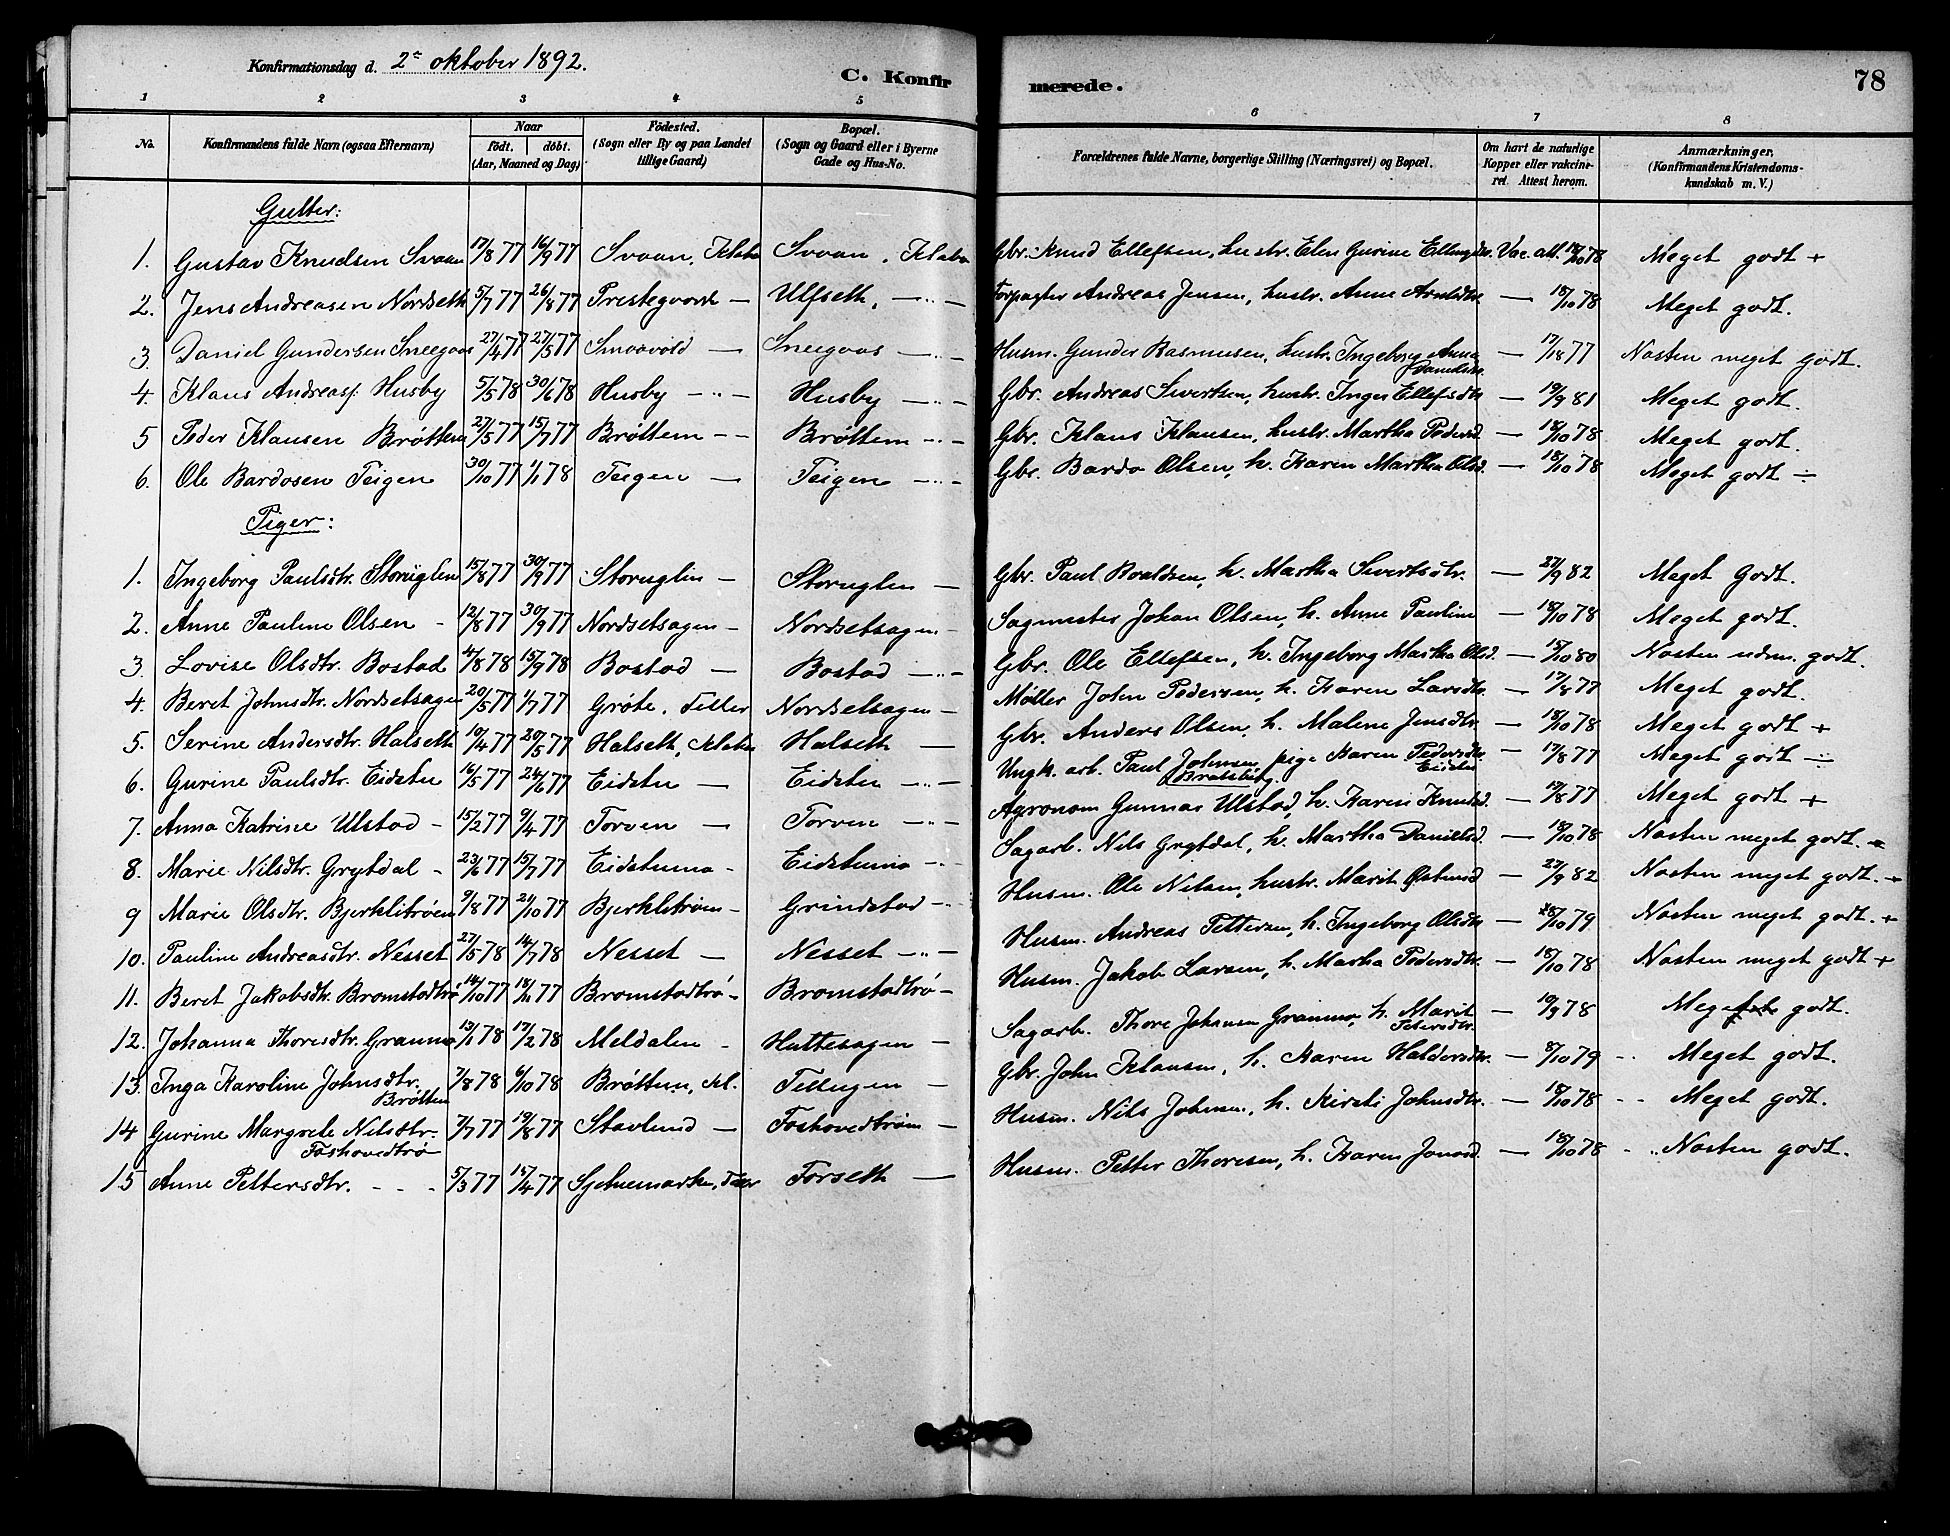 Konfirmationsdag d. 2den oktober 1892.
C. Konfirmerede.
78
1 2 3 4 5 6 7 8
No. Konfirmandens fulde Navn (ogsaa Efternavn) Naar födt. döbt. (Aar, Maaned og Dag) Födested. (Sogn eller By og paa Landet tillige Gaard) Bopæl. (Sogn og Gaard eller i Byerne Gade og Hus-No. Forældrenes fulde Navne, borgerlige Stilling (Næringsvei) og Bopæl. Om havt de naturlige Kopper eller vakcineret. Attest herom. Anmærkninger, (Konfirmandens Kristendomskundskab m. V.)
Gutter:
1. Gustav Knudsen Svaan 17/8 77 16/9 77 Svaan, Klæbu Svaan, Klæbu Gbr. Knud Ellefsen, hustr. Elen Gurine Ellingsdtr. Vac. att. 18/10 78 Meget godt +
2. Jens Andreasen Nordseth 5/7 77 26/8 77 Prestegaard — Ulfseth, — " — Forpagter Andreas Jensen, hustr. Anne Arntsdtr — 18/10 78 Meget godt.
3. Daniel Gundersen Sneegaas 27/4 77 27/5 77 Smaavold — Sneegaas — " — Husm. Gunder Rasmusen, hustr. Ingeborg Anna Danielsdtr. — 17/8 77 Næsten meget godt.
4. Klaus Andreass. Husby 5/5 78 30/6 78 Husby — " — Husby — " — Gbr. Andreas Sivertsen, hustr. Inger Ellefsdtr — 19/9 81 Meget godt.
5 Peder Klausen Brøttem 27/5 77 15/7 77 Brøttem — — Brøttem — " — Gbr. Klaus Klausen, hustr. Martha Pedersd. — 18/10 78 Meget godt.
6. Ole Bardosen Teigen 30/10 77 1/1 78 Teigen — Teigen — " — Gbr. Bardo Olsen, h. Karen Martha Olsd. — 18/10 78 Meget godt ÷
Piger:
1. Ingeborg Paulsdtr. Storuglen 15/8 77 30/9 77 Storuglen — Storuglen — Gbr. Paul Roaldsen, h. Martha Sivertsdtr. — 27/9 82 Meget Godt.
2. Anne Pauline Olsen - 12/8 77 30/9 77 Nordsetsagen — Nordsetsagen — Sagmester Johan Olsen, h. Anne Pauline — 18/10 78 Meget godt.
3. Lovise Olsdtr. Bostad 4/8 78 15/9 78 Bostad — Bostad — " — Gbr. Ole Ellefsen, h. Ingeborg Martha Olsd. — 15/10 80 Næsten udm. godt.
4. Beret Johnsdtr. Nordsetsagen 20/5 77 1/7 77 Grøte, Tiller Nordsetsagen — Møller John Pedersen, h. Karen Larsdtr. — 17/8 77 Meget godt.
5. Serine Andersdtr. Halseth 10/4 77 20/5 77 Halseth, Klæbu Halseth — Gbr. Anders Olsen, h. Malene Jensdtr. — 18/10 78 Meget godt +
6. Gurine Paulsdtr. Eidstu 16/5 77 24/6 77 Eidstu — Eidstu — " — Ungk. arb. Paul Johnsen Bratsberg, pige Karen Pedersdtr. Eidstu — 17/8 77 Meget godt ÷
7. Anna Katrine Ulstad - 15/2 77 9/4 77 Torven — Torven — " — Agronom Gunnar Ulstad, h. Karen Knutsd. — 17/8 77 Meget godt +
8. Marie Nilsdtr. Grytdal - 23/6 77 15/7 77 Eidstumo - Eidstumo — " — Sagarb. Nils Grytdal, h. Martha Danielsd. — 18/10 78 Næsten meget godt. +
9 Marie Olsdtr. Bjerklitrøen 9/8 77 21/10 77 Bjerklitrøen - Grindstad — " Husm. Ole Nilsen, hustr. Marit Østensd — 27/9 82 Næsten meget godt. +
10. Pauline Andreasdtr. Nesset 27/5 78 14/7 78 Nesset — Nesset — " — Husm. Andreas Pettersen, h. Ingeborg Olsdtr — 18/10 79 Næsten meget godt. +
11. Beret Jakobsdtr. Bromstadtrø 14/10 77 18/11 77 Bromstadtrø - Bromstadtrø — Husm. Jakob Larsen, h. Martha Pedersdtr. — 18/10 78 Næsten meget godt +
12. Johanna Thoresdtr. Granmo 13/1 78 17/2 78 Meldalen - Huttesagen — Sagarb. Thore Johansen Granmo, h. Marit Petersdtr. — 10/9 78 Meget godt.
13. Inga Karoline Johnsdtr. Brøttem 7/8 78 6/10 78 Brøttem, Kl. Tellugen — Gbr. John Klausen, h. Karen Haldorsdtr. — 8/10 79 Meget godt.
14 Gurine Margrete Nilsdtr. Foshovedtrø 7/7 77 19/8 77 Stavlund — Foshovedtrøen — Husm. Nils Johnsen, h. Kirsti Johnsdtr. — 18/10 78 Meget godt.
15 Anne Pettersdtr. - - - 5/3 77 15/4 77 Sjetnemarken, Tiller Forseth — Husm. Petter Thoresen, h. Karen Jonsd. — 18/10 78 Næsten godt.